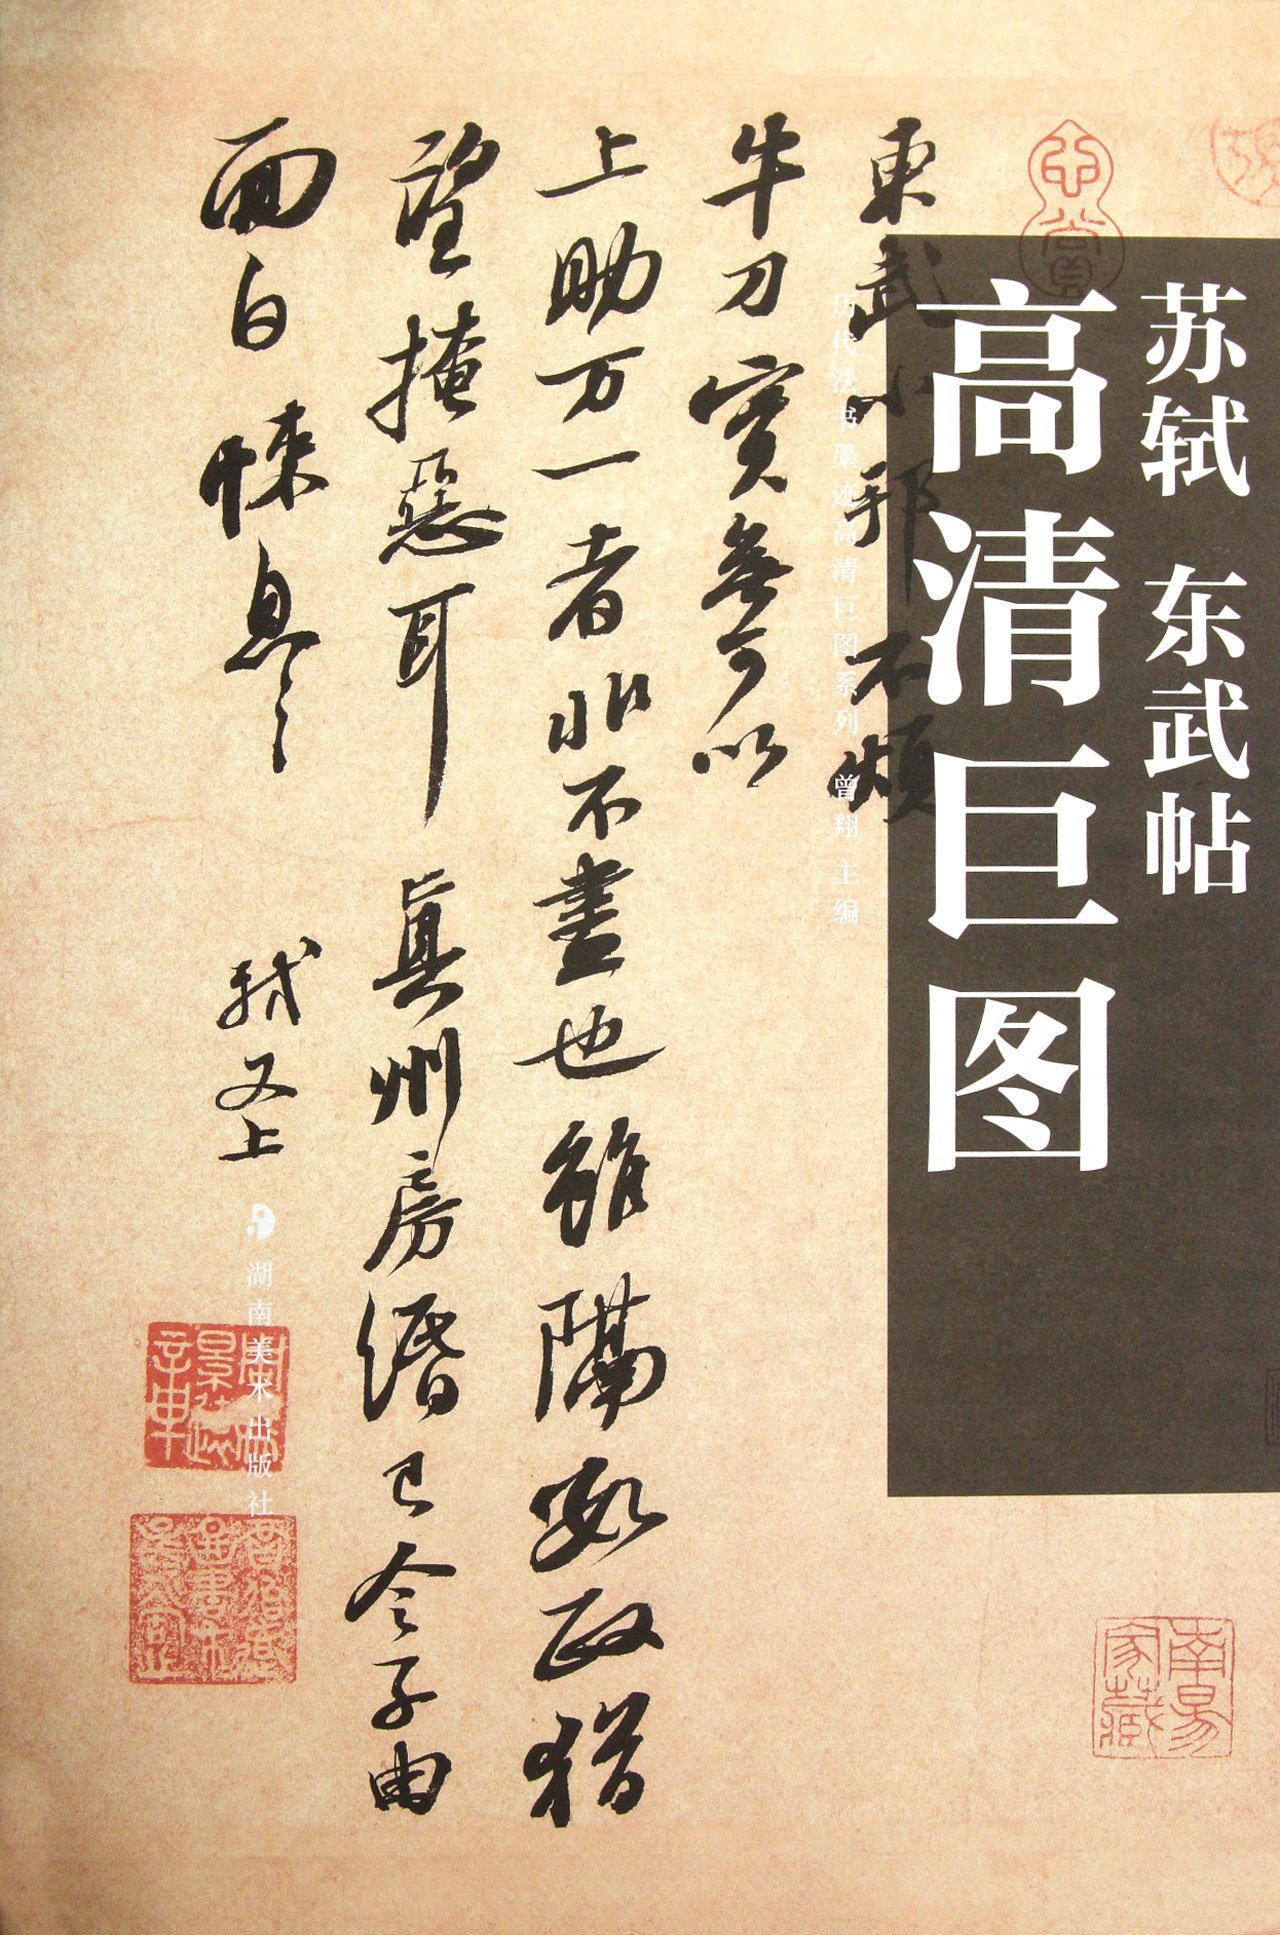 苏轼 东武帖
高清巨图
历代法书墨迹高清巨图系列 曾翔 主编
東武小邦不煩
牛刀實無可以
上助万一者非不盡也雖隔數政猶
望掩惡耳真州房緡已令子由
面白悚息〻 軾又上
湖南美术出版社